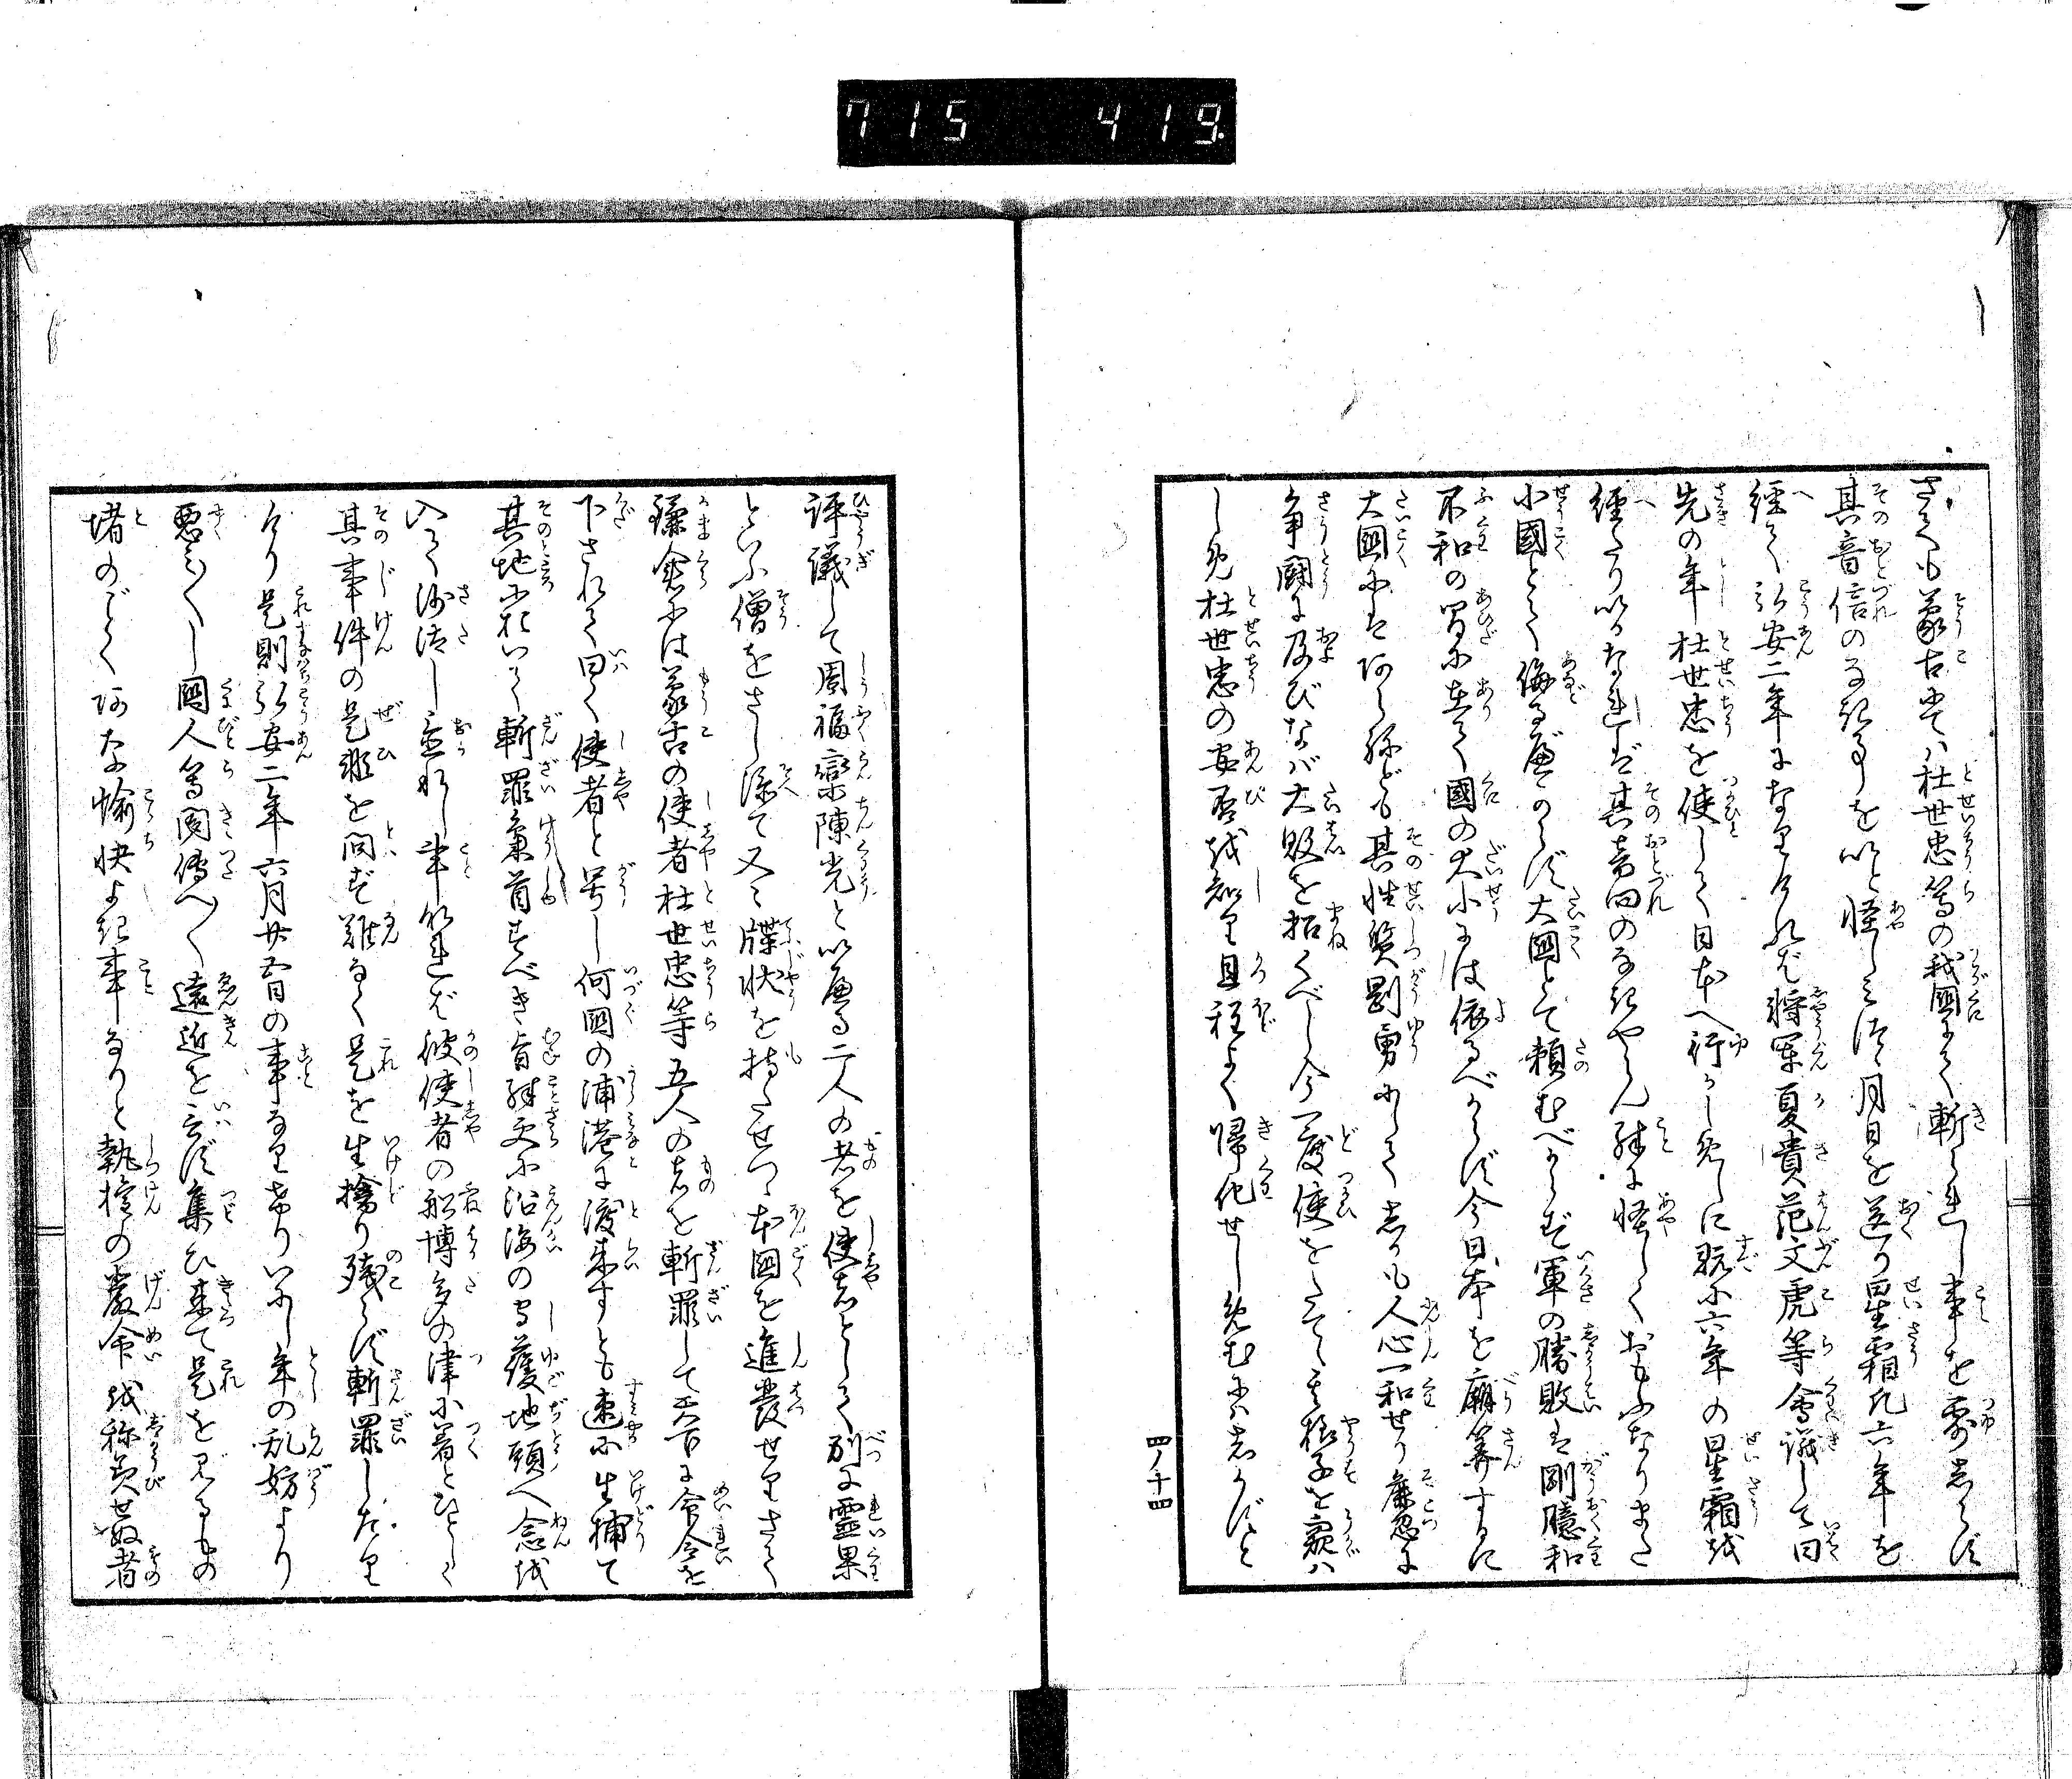 715 419
さても蒙古にては杜世忠等の我國にて斬られし事を露しらず
其音信のなき事を いと怪しみつゝ月日を送り星霜凡六年を
經て弘安二年になりければ將軍夏貴范文虎等會議して曰
先の年杜世忠を使して日本へ行かしめしに既に六年の星霜を
經たり いかなれば其音回のなきやらん殊に怪しくおもふなりまた
小國とて侮る べからず大國とて頼むべからず軍の勝敗は剛臆和
不和の間に在て國の大小には依るべからず今日本を廟算するに
大國にはあらねども其性質剛勇にしてしかも人心一和せり麁忽に
争闘に及びなば大敗を招くべし今一度使をたてゝ其様子を窺ハ
しめ杜世忠の安否を知り且程よく歸化せしめむにハしかずと
四ノ十四
評議して周福欒陳光といへる二人の者を使者として別に靈果
といふ僧をさし添て又々牒状を持たせつゝ本國を進發せりさて
鎌倉には蒙古の使者杜世忠等五人の者を斬罪して 西国に命令を
下されて曰く使者と号し何國の浦港に渡来すとも速に生捕て
其地に於いて斬罪梟首すべき旨殊更に沿海の守護地頭へ念を
入て沙汰し置れし事なれば彼使者の船博多の津に着とひとしく
其事件の是非を問ず難なく是を生擒り残らず斬罪したり
けり是則弘安二年六月廿五日の事なりけりいにし年の乱妨より
悪みし國人等聞傳へて遠近を云ず集ひ来て是を見るもの
堵のごとくあな愉快よき事なりと執權の嚴命を称美せぬ者